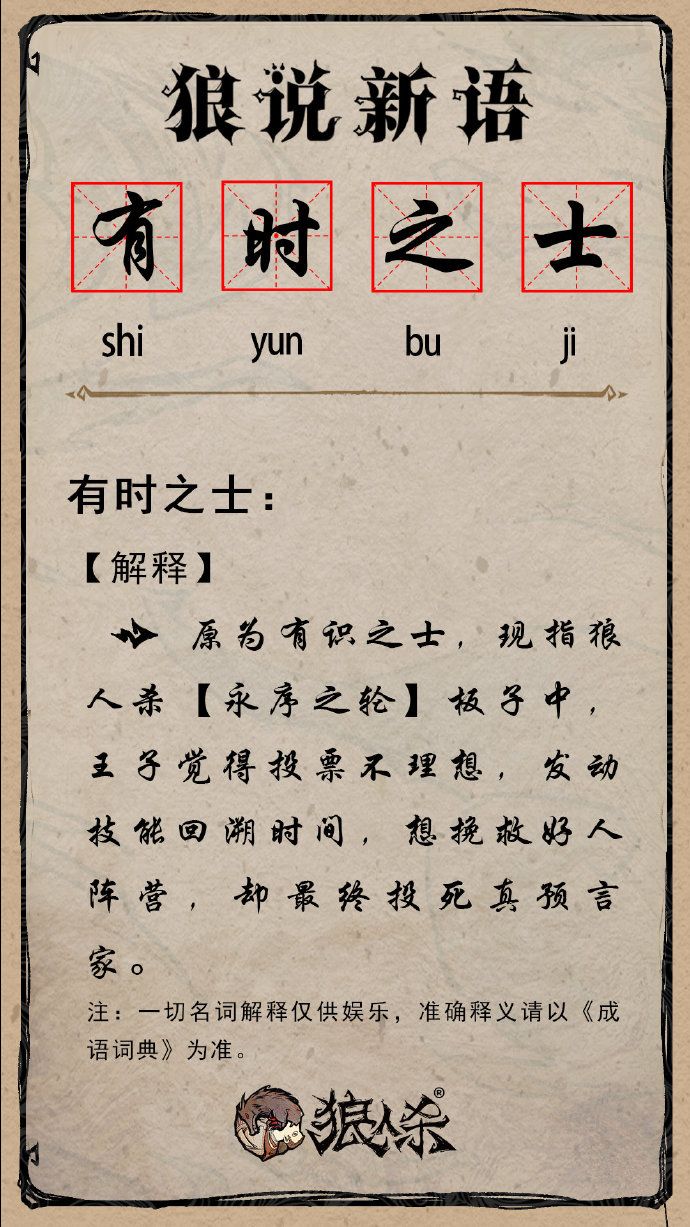 狼说新语
有时之士
shi yun bu ji
有时之士：
【解释】
原为有识之士，现指狼
人杀【永序之轮】板子中，
王子觉得投票不理想，发动
技能回溯时间，想挽救好人
阵营，却最终投死真预言
家。
注：一切名词解释仅供娱乐，准确释义请以《成
语词典》为准。
狼人杀®